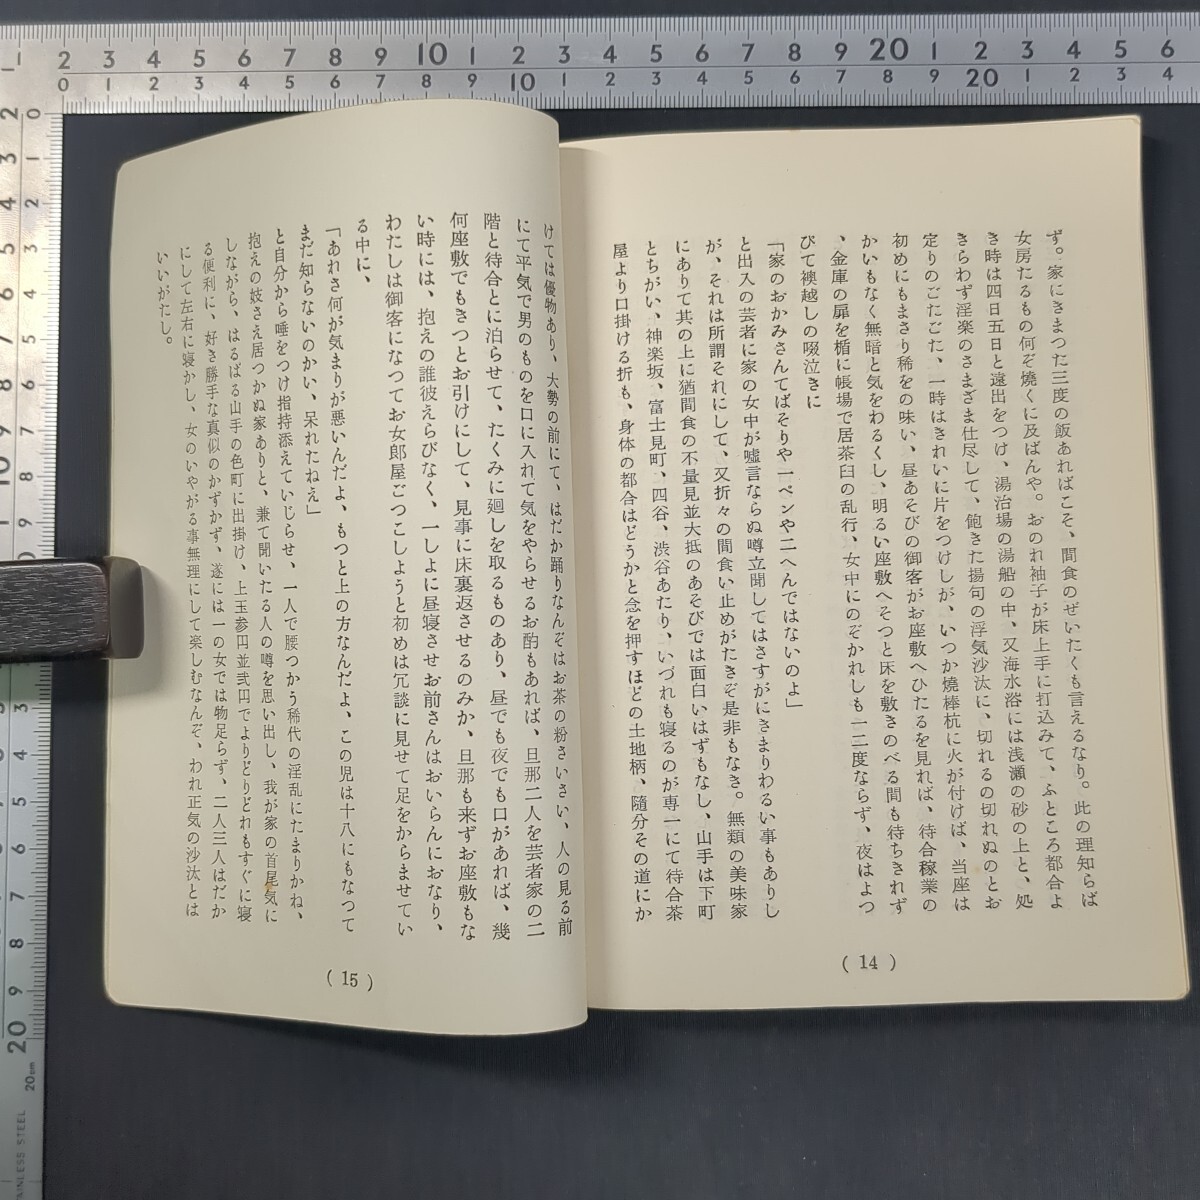 ず。家にきまつた三度の飯あればこそ、間食のぜいたくも言えるなり。此の理知らば
女房たるもの何ぞ焼くに及ばんや。おのれ袖子が床上手に打込みて、ふところ都合よ
き時は四日五日と遠出をつけ、湯治場の湯船の中、又海水浴には浅瀬の砂の上と、処
きらわず淫楽のさまざま仕尽して、飽きた揚句の浮気沙汰に、切れるの切れぬのとお
定りのごたごた、一時はきれいに片をつけしが、いつか焼棒杭に火が付けば、当座は
初めにもまさり稀をの味い、昼あそびの御客がお座敷へひたるを見れば、待合稼業の
かいもなく無暗と気をわるくし、明るい座敷へそつと床を敷きのべる間も待ちきれず
、金庫の扉を楯に帳場で居茶臼の乱行、女中にのぞかれしも一二度ならず、夜はよつ
びて襖越しの啜泣きに
「家のおかみさんてばそりや一ペンや二へんではないのよ」
と出入の芸者に家の女中が嘘言ならぬ噂立聞してはさすがにきまりわるい事もありし
が、それは所謂それにして、又折々の間食い止めがたきぞ是非もなき。無類の美味家
にありて其の上に猶間食の不量見並大抵のあそびでは面白いはずもなし、山手は下町
とちがい、神楽坂、富士見町、四谷、渋谷あたり、いづれも寝るのが専一にて待合茶
屋より口掛ける折も、身体の都合はどうかと念を押すほどの土地柄、随分その道にか
(14)
けては優物あり、大勢の前にて、はだか踊りなんぞはお茶の粉さいさい、人の見る前
にて平気で男のものを口に入れて気をやらせるお酌もあれば、旦那二人を芸者家の二
階と待合とに泊らせて、たくみに廻しを取るものあり、昼でも夜でも口があれば、幾
何座敷でもきつとお引けにして、見事に床裏返させるのみか、旦那も来ずお座敷もな
い時には、抱えの誰彼えらびなく、一しよに昼寝させお前さんはおいらんにおなり、
わたしは御客になつてお女郎屋ごつこしようと初めは冗談に見せて足をからませてい
る中に、
「あれさ何が気まりが悪いんだよ、もつと上の方なんだよ、この児は十八にもなつて
まだ知らないのかい、呆れたねえ」
と自分から唾をつけ指持添えていじらせ、一人で腰つかう稀代の淫乱にたまりかね、
抱えの妓さえ居つかぬ家ありと、兼て聞いたる人の噂を思い出し、我が家の首尾気に
しながら、はるばる山手の色町に出掛け、上玉参円並弐円でよりどりどれもすぐに寝
る便利に、好き勝手な真似のかずかず、遂には一の女では物足らず、二人三人はだか
にして左右に寝かし、女のいやがる事無理にして楽しむなんぞ、われ正気の沙汰とは
いいがたし。
(15)